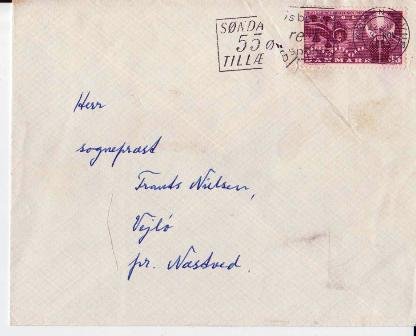 SØNDA
55 Ø
TILLÆ
DANMARK
35
Herr
sognepræst
Frants Nielsen,
Vejlø
pr. Næstved.